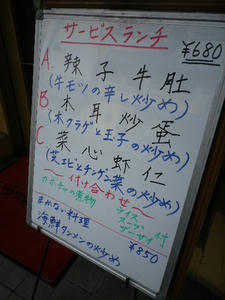 サービスランチ
¥680
A. 辣子牛肚
(牛モツの辛し炒め)
B 木耳炒蛋
(木クラゲと玉子の炒め)
C 菜心虾仁
(芝エビとチンゲン菜の炒め)
〜付け合わせ〜
カボチャの煮物
ライス
スープ
ザーサイ付
まかない料理
海鮮タンメンの炒め
¥850